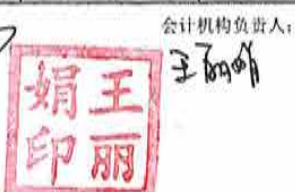 会计机构负责人：
王丽娟
王丽娟印